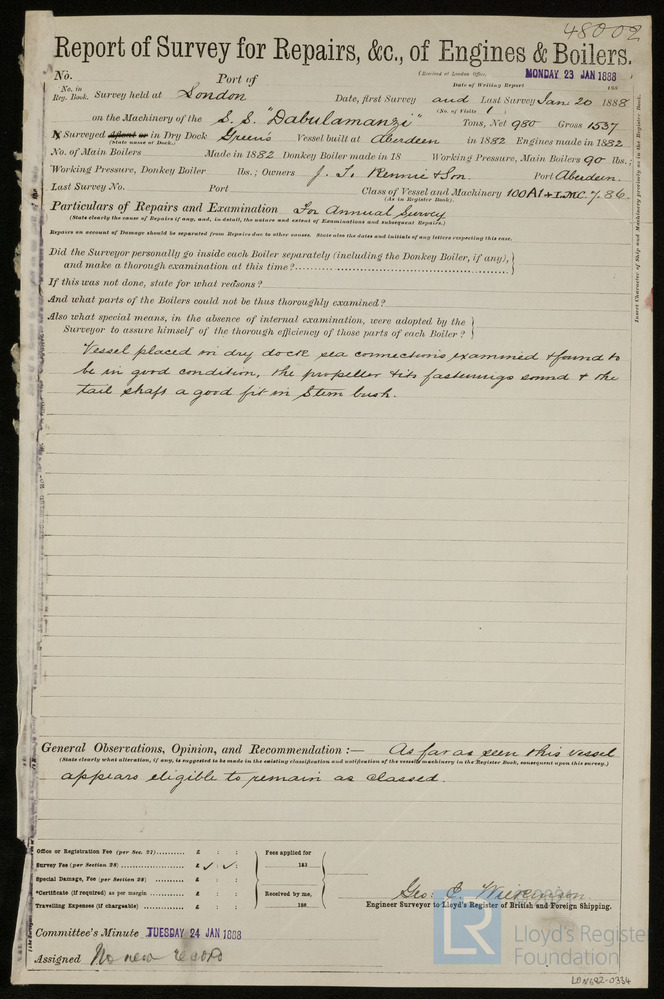 48002
Report of Survey for Repairs, &c., of Engines & Boilers.
(Received at London Office, MONDAY 23 JAN 1888)
No. Port of
Date of Writing Report 188
No. in Reg. Book. Survey held at London Date, first Survey and Last Survey Jan: 20 1888
(No. of Visits 1)
on the Machinery of the S. S. "Dabulamanzi" Tons, Net 980 Gross 1537
Surveyed Afloat or in Dry Dock Green's Vessel built at Aberdeen in 1882 Engines made in 1882
(State name of Dock.)
No. of Main Boilers Made in 1882 Donkey Boiler made in 18 Working Pressure, Main Boilers 90 lbs.;
Working Pressure, Donkey Boiler lbs.; Owners J. T. Rennie & Son Port Aberdeen.
Last Survey No. Port Class of Vessel and Machinery 100A1 + LMC 7.86
(As in Register Book).
Particulars of Repairs and Examination For Annual Survey
(State clearly the cause of Repairs if any, and, in detail, the nature and extent of Examinations and subsequent Repairs.)
Repairs on account of Damage should be separated from Repairs due to other causes. State also the dates and initials of any letters respecting this case.
Did the Surveyor personally go inside each Boiler separately (including the Donkey Boiler, if any),
and make a thorough examination at this time?
If this was not done, state for what reasons?
And what parts of the Boilers could not be thus thoroughly examined?
Also what special means, in the absence of internal examination, were adopted by the
Surveyor to assure himself of the thorough efficiency of those parts of each Boiler?
Vessel placed in dry dock sea connections examined & found to
be in good condition, the propeller & its fastenings sound & the
tail shaft a good fit in Stern bush.
Insert Character of Ship and Machinery precisely as in the Register Book.
General Observations, Opinion, and Recommendation :— As far as seen this vessel
(State clearly what alteration, if any, is suggested to be made in the existing classification and notification of the vessel's machinery in the Register Book, consequent upon this survey.)
appears eligible to remain as classed.
Office or Registration Fee (per Sec. 27).......... £ : : Fees applied for
Survey Fee (per Section 28) .......... £ : : 188
Special Damage, Fee (per Section 28) .......... £ : :
*Certificate (if required) as per margin .......... £ : : Received by me,
Travelling Expenses (if chargeable) .......... £ : : 188
Geo: C. Wilkinson
Engineer Surveyor to Lloyd's Register of British and Foreign Shipping.
Committee's Minute TUESDAY 24 JAN 1888
Assigned No new record
LR Lloyd's Register
Foundation
LON682-0334